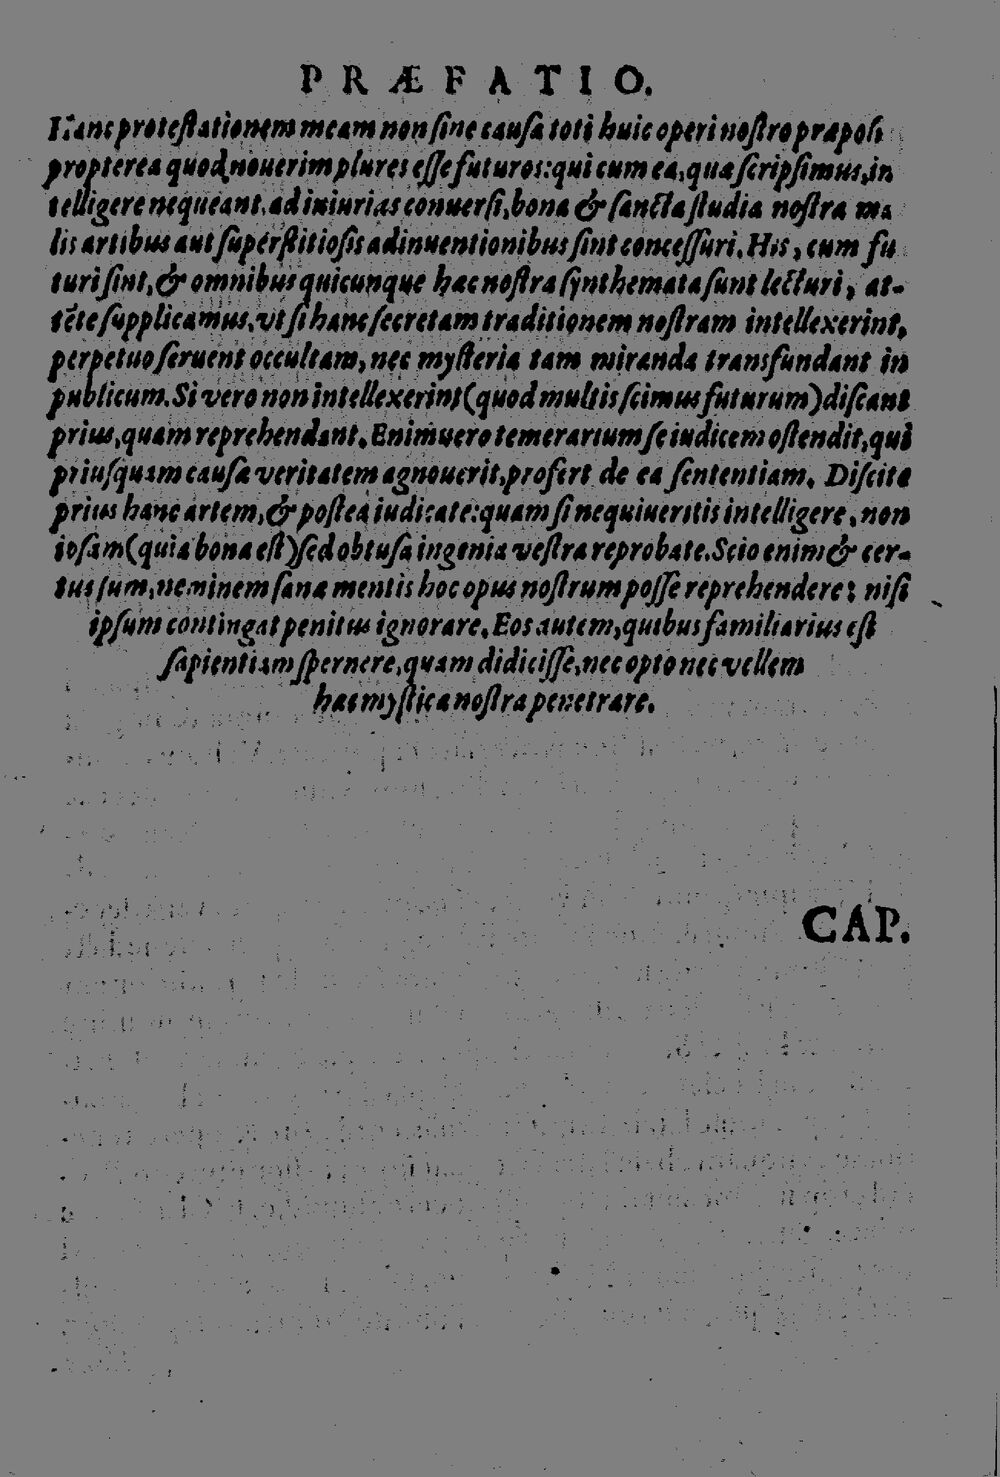 PRÆFATIO.
Hanc protestationem meam non sine causa toti huic operi nostro præposi
propterea quod nouerim plures esse futuros: qui cum ea, quæ scripsimus, in
telligere nequeant, ad iniurias conuersi, bona & sancta studia nostra ma
lis artibus aut superstitiosis adinuentionibus sint concessuri. His, cum fu
turi sint, & omnibus quicunque hæc nostra synthemata sunt lecturi, at-
tēte supplicamus, vt si hanc secretam traditionem nostram intellexerint,
perpetuo seruent occultam, nec mysteria tam miranda transfundant in
publicum. Si vero non intellexerint (quod multis scimus futurum) discant
prius, quam reprehendant. Enimuero temerarium se iudicem ostendit, qui
priusquam causæ veritatem agnouerit, profert de ea sententiam. Discite
prius hanc artem, & postea iudicate: quam si nequiueritis intelligere, non
ipsam (quia bona est) sed obtusa ingenia vestra reprobate. Scio enim & cer-
tus sum, neminem sanæ mentis hoc opus nostrum posse reprehendere; nisi
ipsum contingat penitus ignorare. Eos autem, quibus familiarius est
sapientiam spernere, quam didicisse, nec opto nec vellem
hæc mystica nostra penetrare.
CAP.